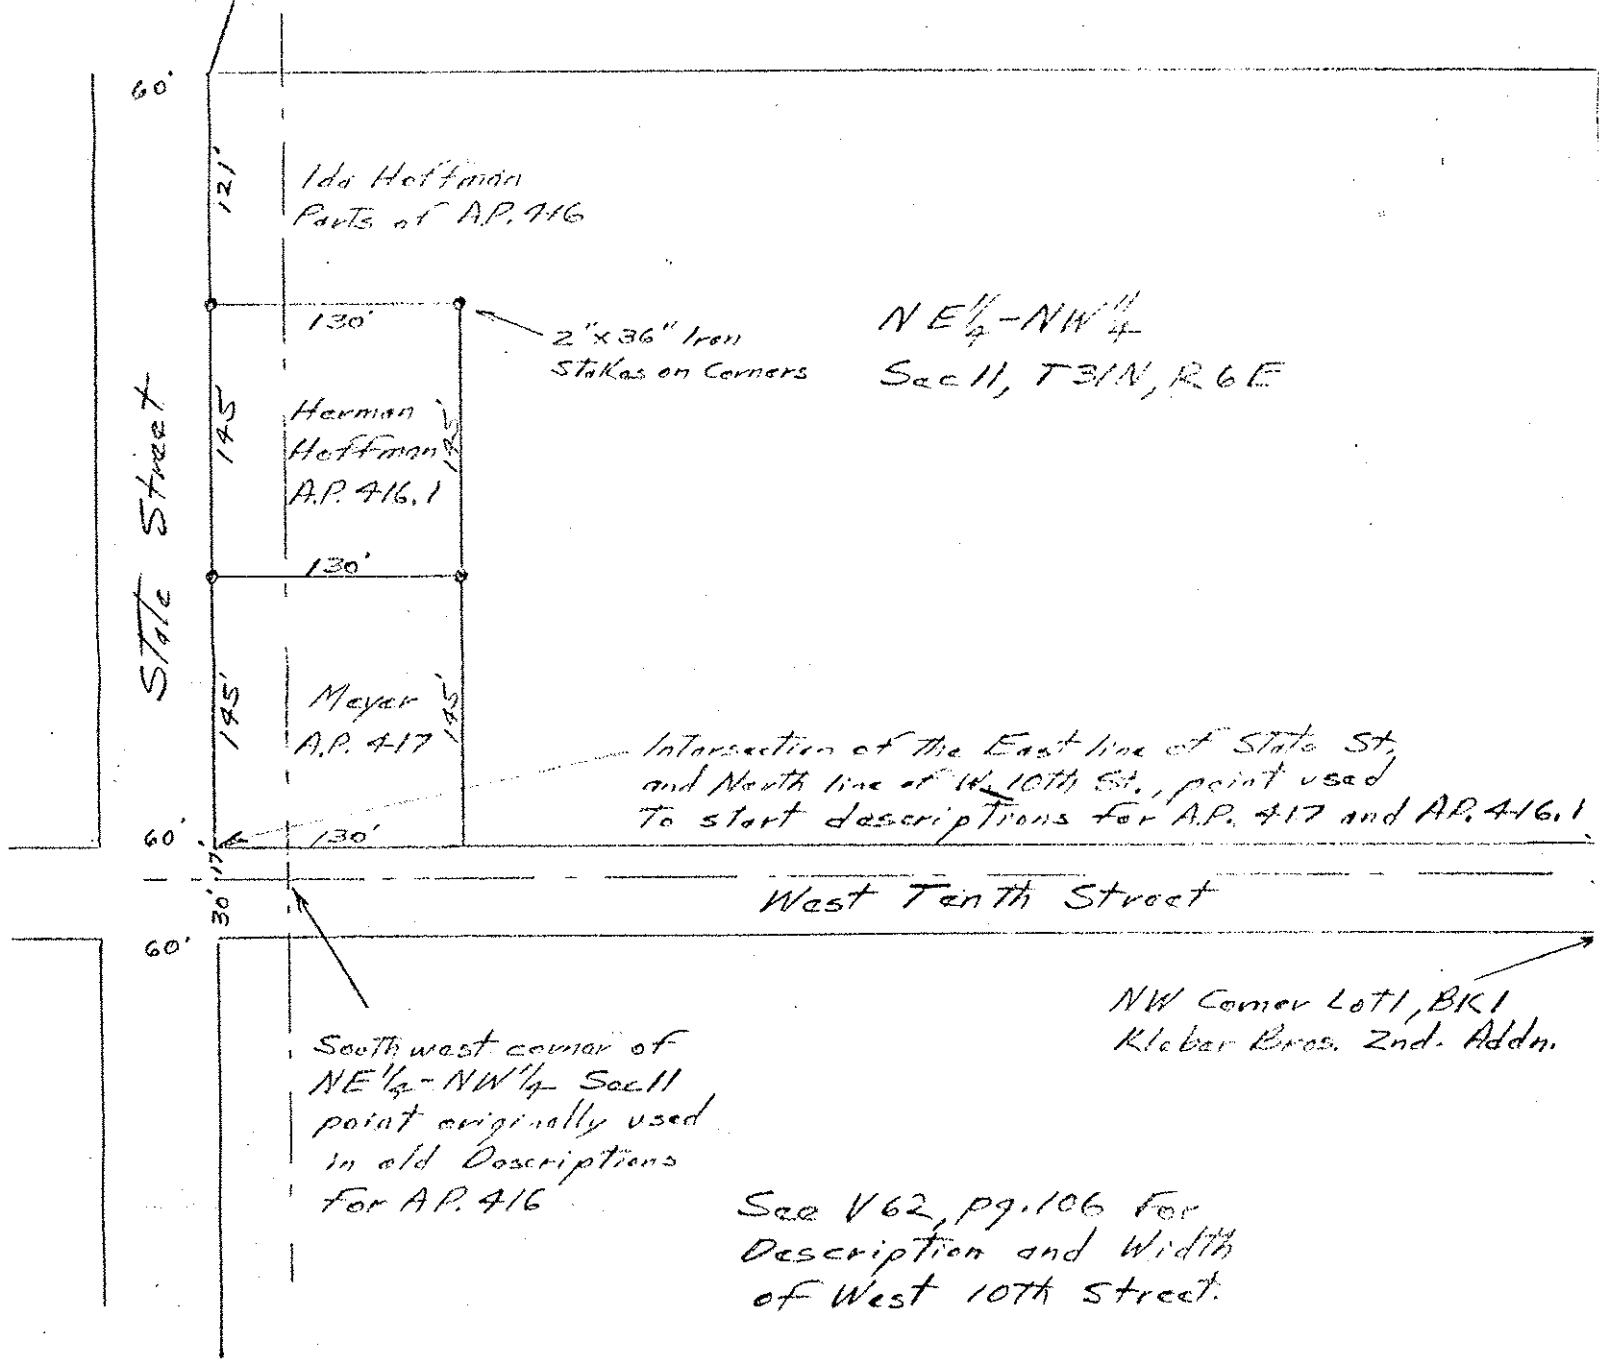 60'
121'
Ida Hoffman
Parts of A.P. 416
130'
2"x36" Iron
Stakes on Corners
NE¼-NW¼
Sec 11, T31N, R6E
State Street
145'
Herman
Hoffman
A.P. 416.1
145'
130'
145'
Meyer
A.P. 417
145'
Intersection of the East line of State St.
and North line of W. 10th St., point used
To start descriptions for A.P. 417 and A.P. 416.1
60'
130'
17'
30'
West Tenth Street
60'
NW Corner Lot 1, BK 1
Kleber Bros. 2nd. Addn.
Southwest corner of
NE¼-NW¼ Sec 11
point originally used
in old Descriptions
For A.P. 416
See V62, pg. 106 For
Description and Width
of West 10th Street.